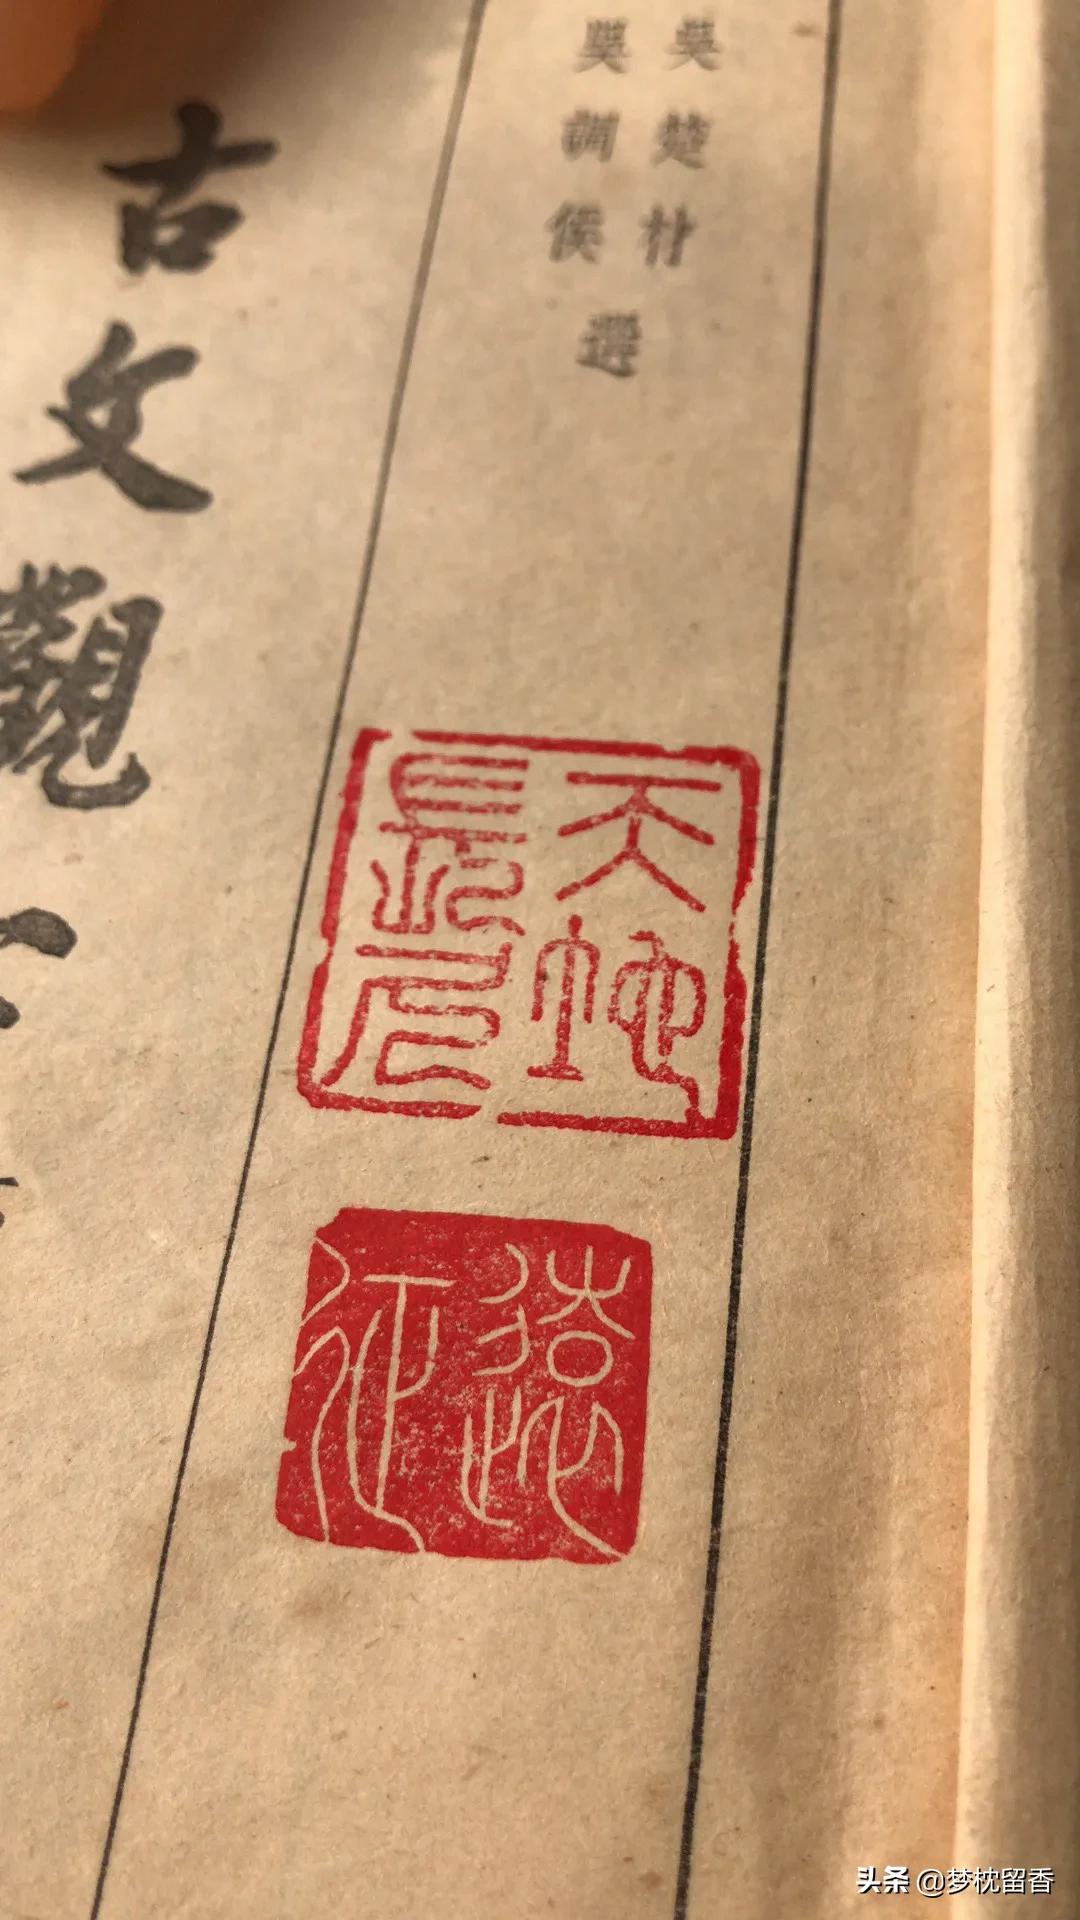 吳楚材
吳調侯
選
古文觀
天
長
遠征
头条 @梦枕留香